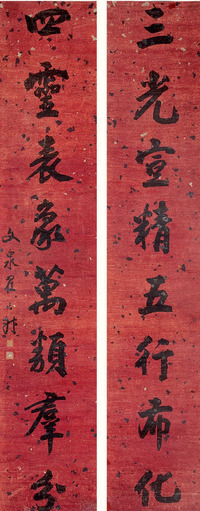 三光宣精五行布化
四靈表象萬類羣分
文泉